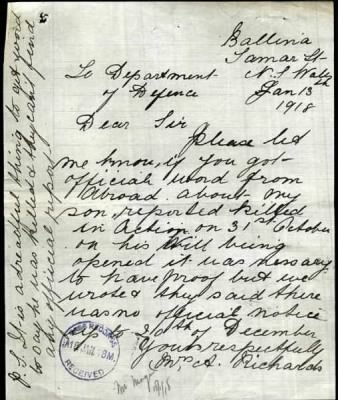 Ballina
Tamar St
To Department N. S. Wales
of Defence Jan 13th
1918
Dear Sir
Please let
me know, if you got
official word from
Abroad about my
son, reported killed
in Action on 31st October
on his Will being
opened it was nessary
to have proof but we
wrote & they said there
was no official notice
up to 20th of December
Yours respectfully
Mrs A. Richards
P. S. It is a dreadful thing to get word
to say he was killed & they cant find
any official report
RECEIVED